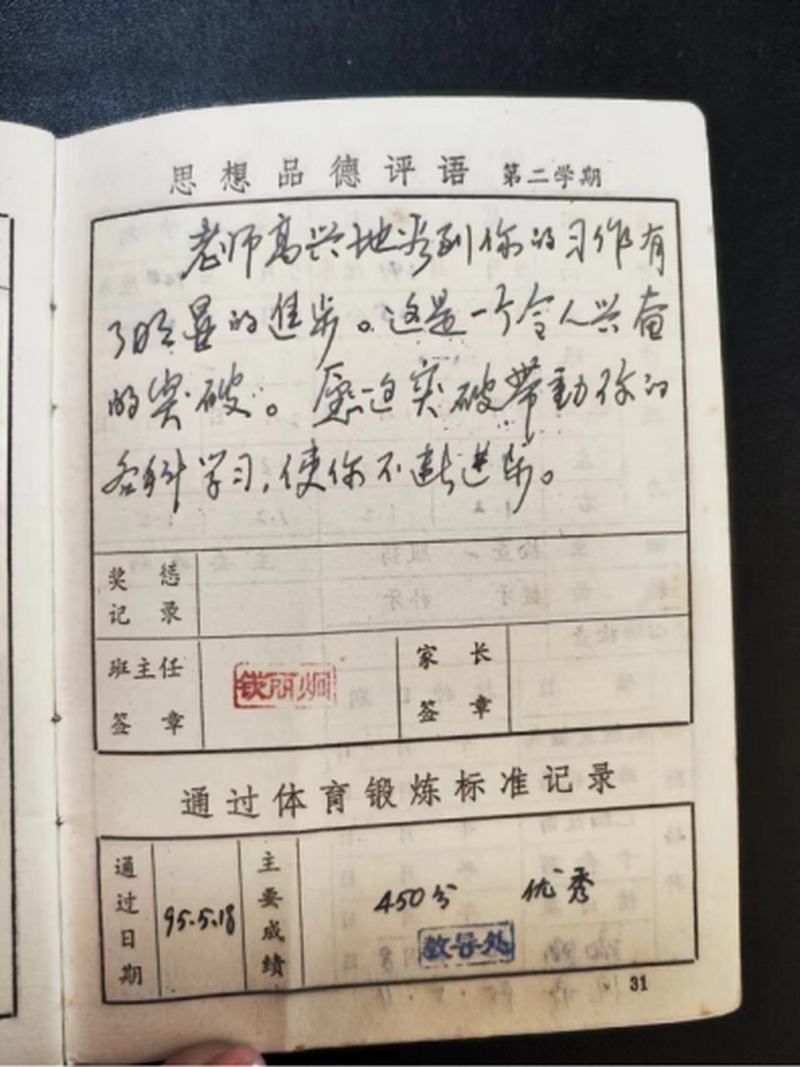 思想品德评语 第二学期
老师高兴地看到你的习作有
了明显的进步。这是一个令人兴奋
的突破。愿这突破带动你的
各科学习,使你不断进步。
奖惩
记录
班主任
签章
家长
签章
通过体育锻炼标准记录
通过日期
95.5.18
主要成绩
450分 优秀
教导处
31